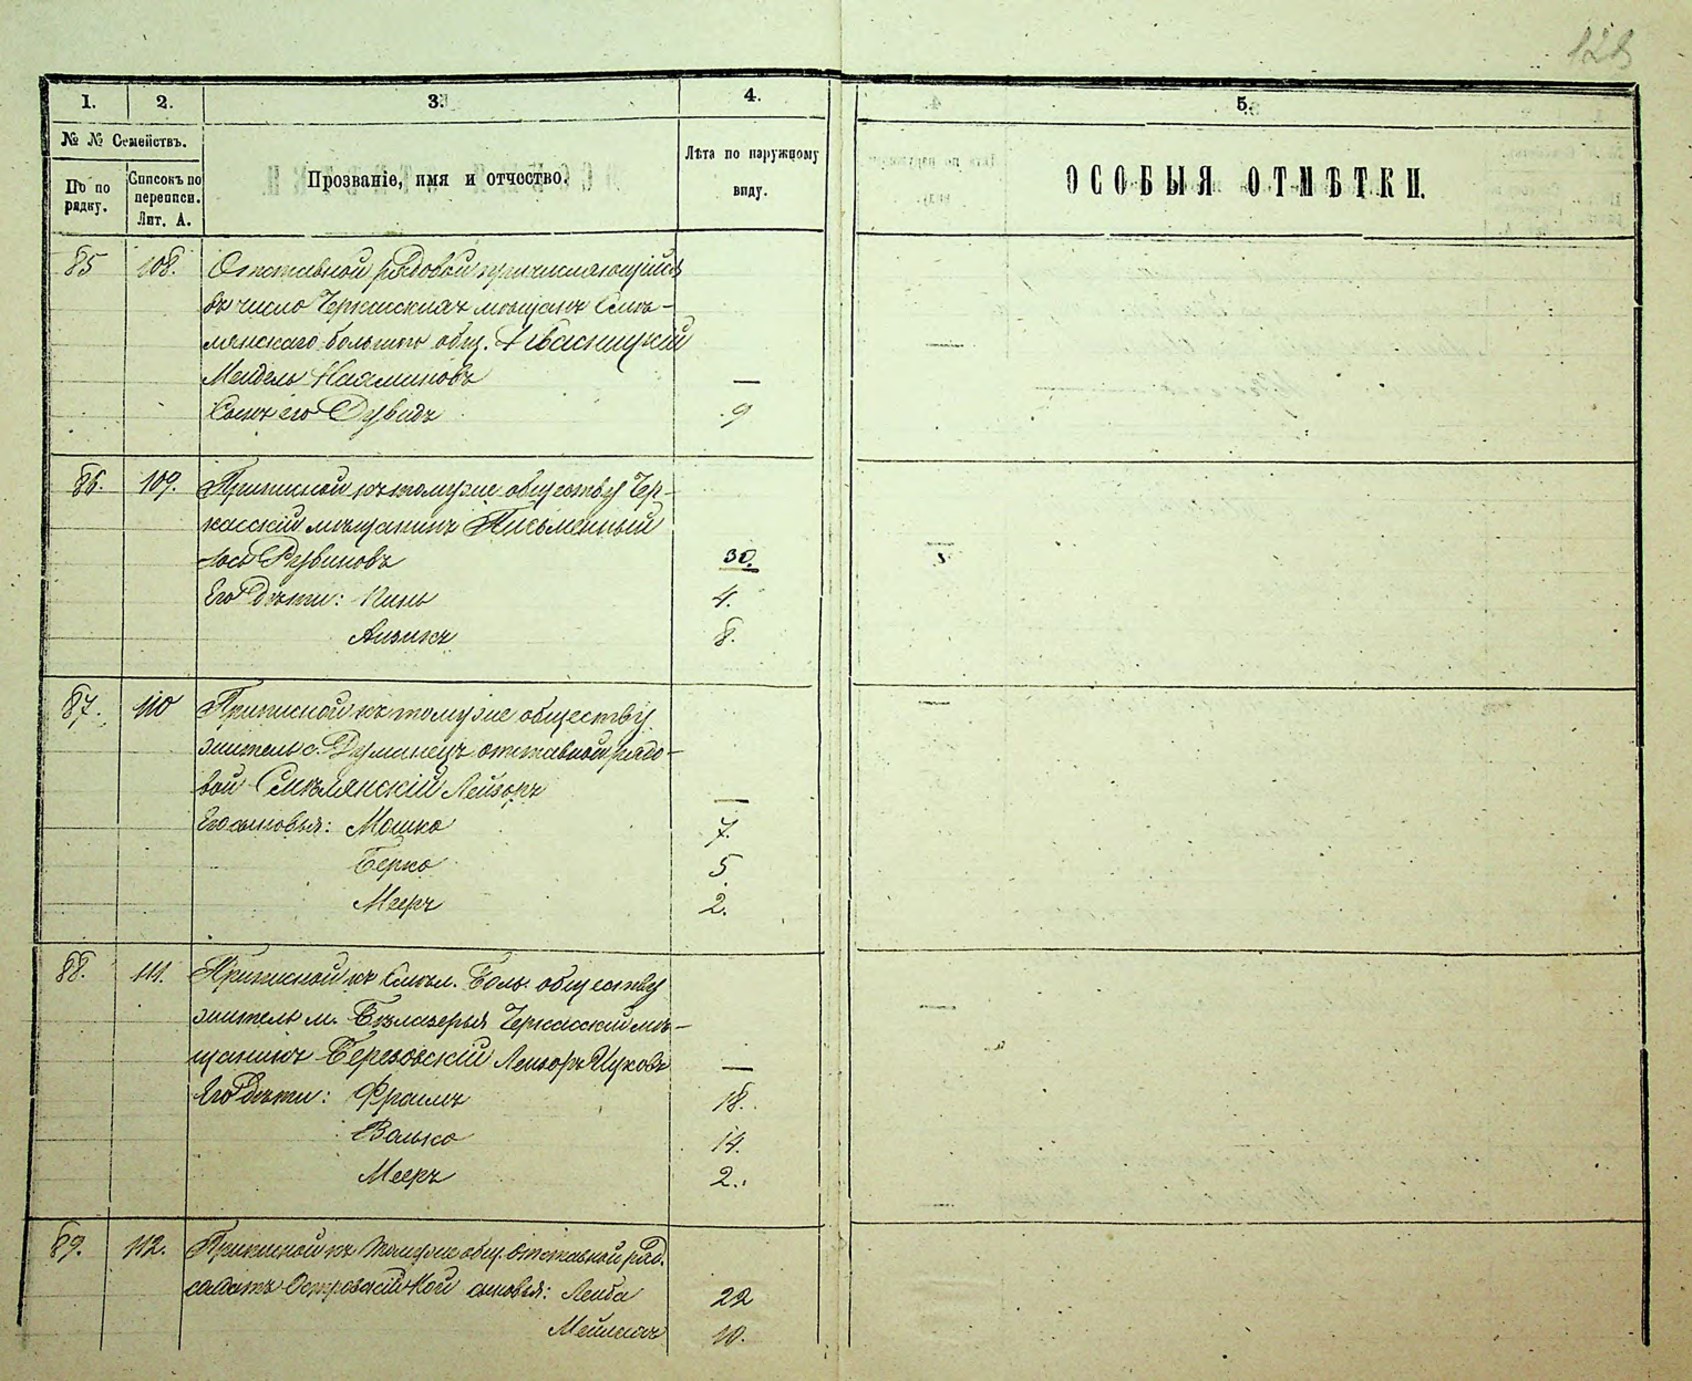 123
1. 2. 3. 4. 5.
№ № Семействъ.
По по рядку.
Списокъ по переписи. Лит. А.
Прозваніе, имя и отчество.
Лѣта по наружному виду.
ОСОБЫЯ ОТМѢТКИ.
85 108. Отставной рядовой причисляющійся
въ число Черкасскихъ мѣщанъ Смѣ-
лянскаго большого общ.
Мендель —
Сынъ его Дувидъ 9
86. 109. Приписной къ томуже обществу Чер-
касскій мѣщанинъ Письменный
Іось Рувиновъ 30.
Его дѣти: Пинь 4.
Айзикъ 8.
87. 110 Приписной къ томуже обществу
житель с. Думанецъ отставной рядо-
вой Смѣлянскій Лейзоръ —
Его сыновья: Мошко 7.
Берко 5
Мееръ 2.
88. 111. Приписной къ Смѣл. Боль. обществу
житель м. Бѣлазерья Черкасскій мѣ-
щанинъ Березовскій Лейзоръ Ицковъ —
Его дѣти: Фроимъ 18.
Волько 14.
Мееръ 2.
89. 112. Приписной къ томуже общ. отставной ряд.
солдатъ Островскій сыновья: Лейба 22
10.